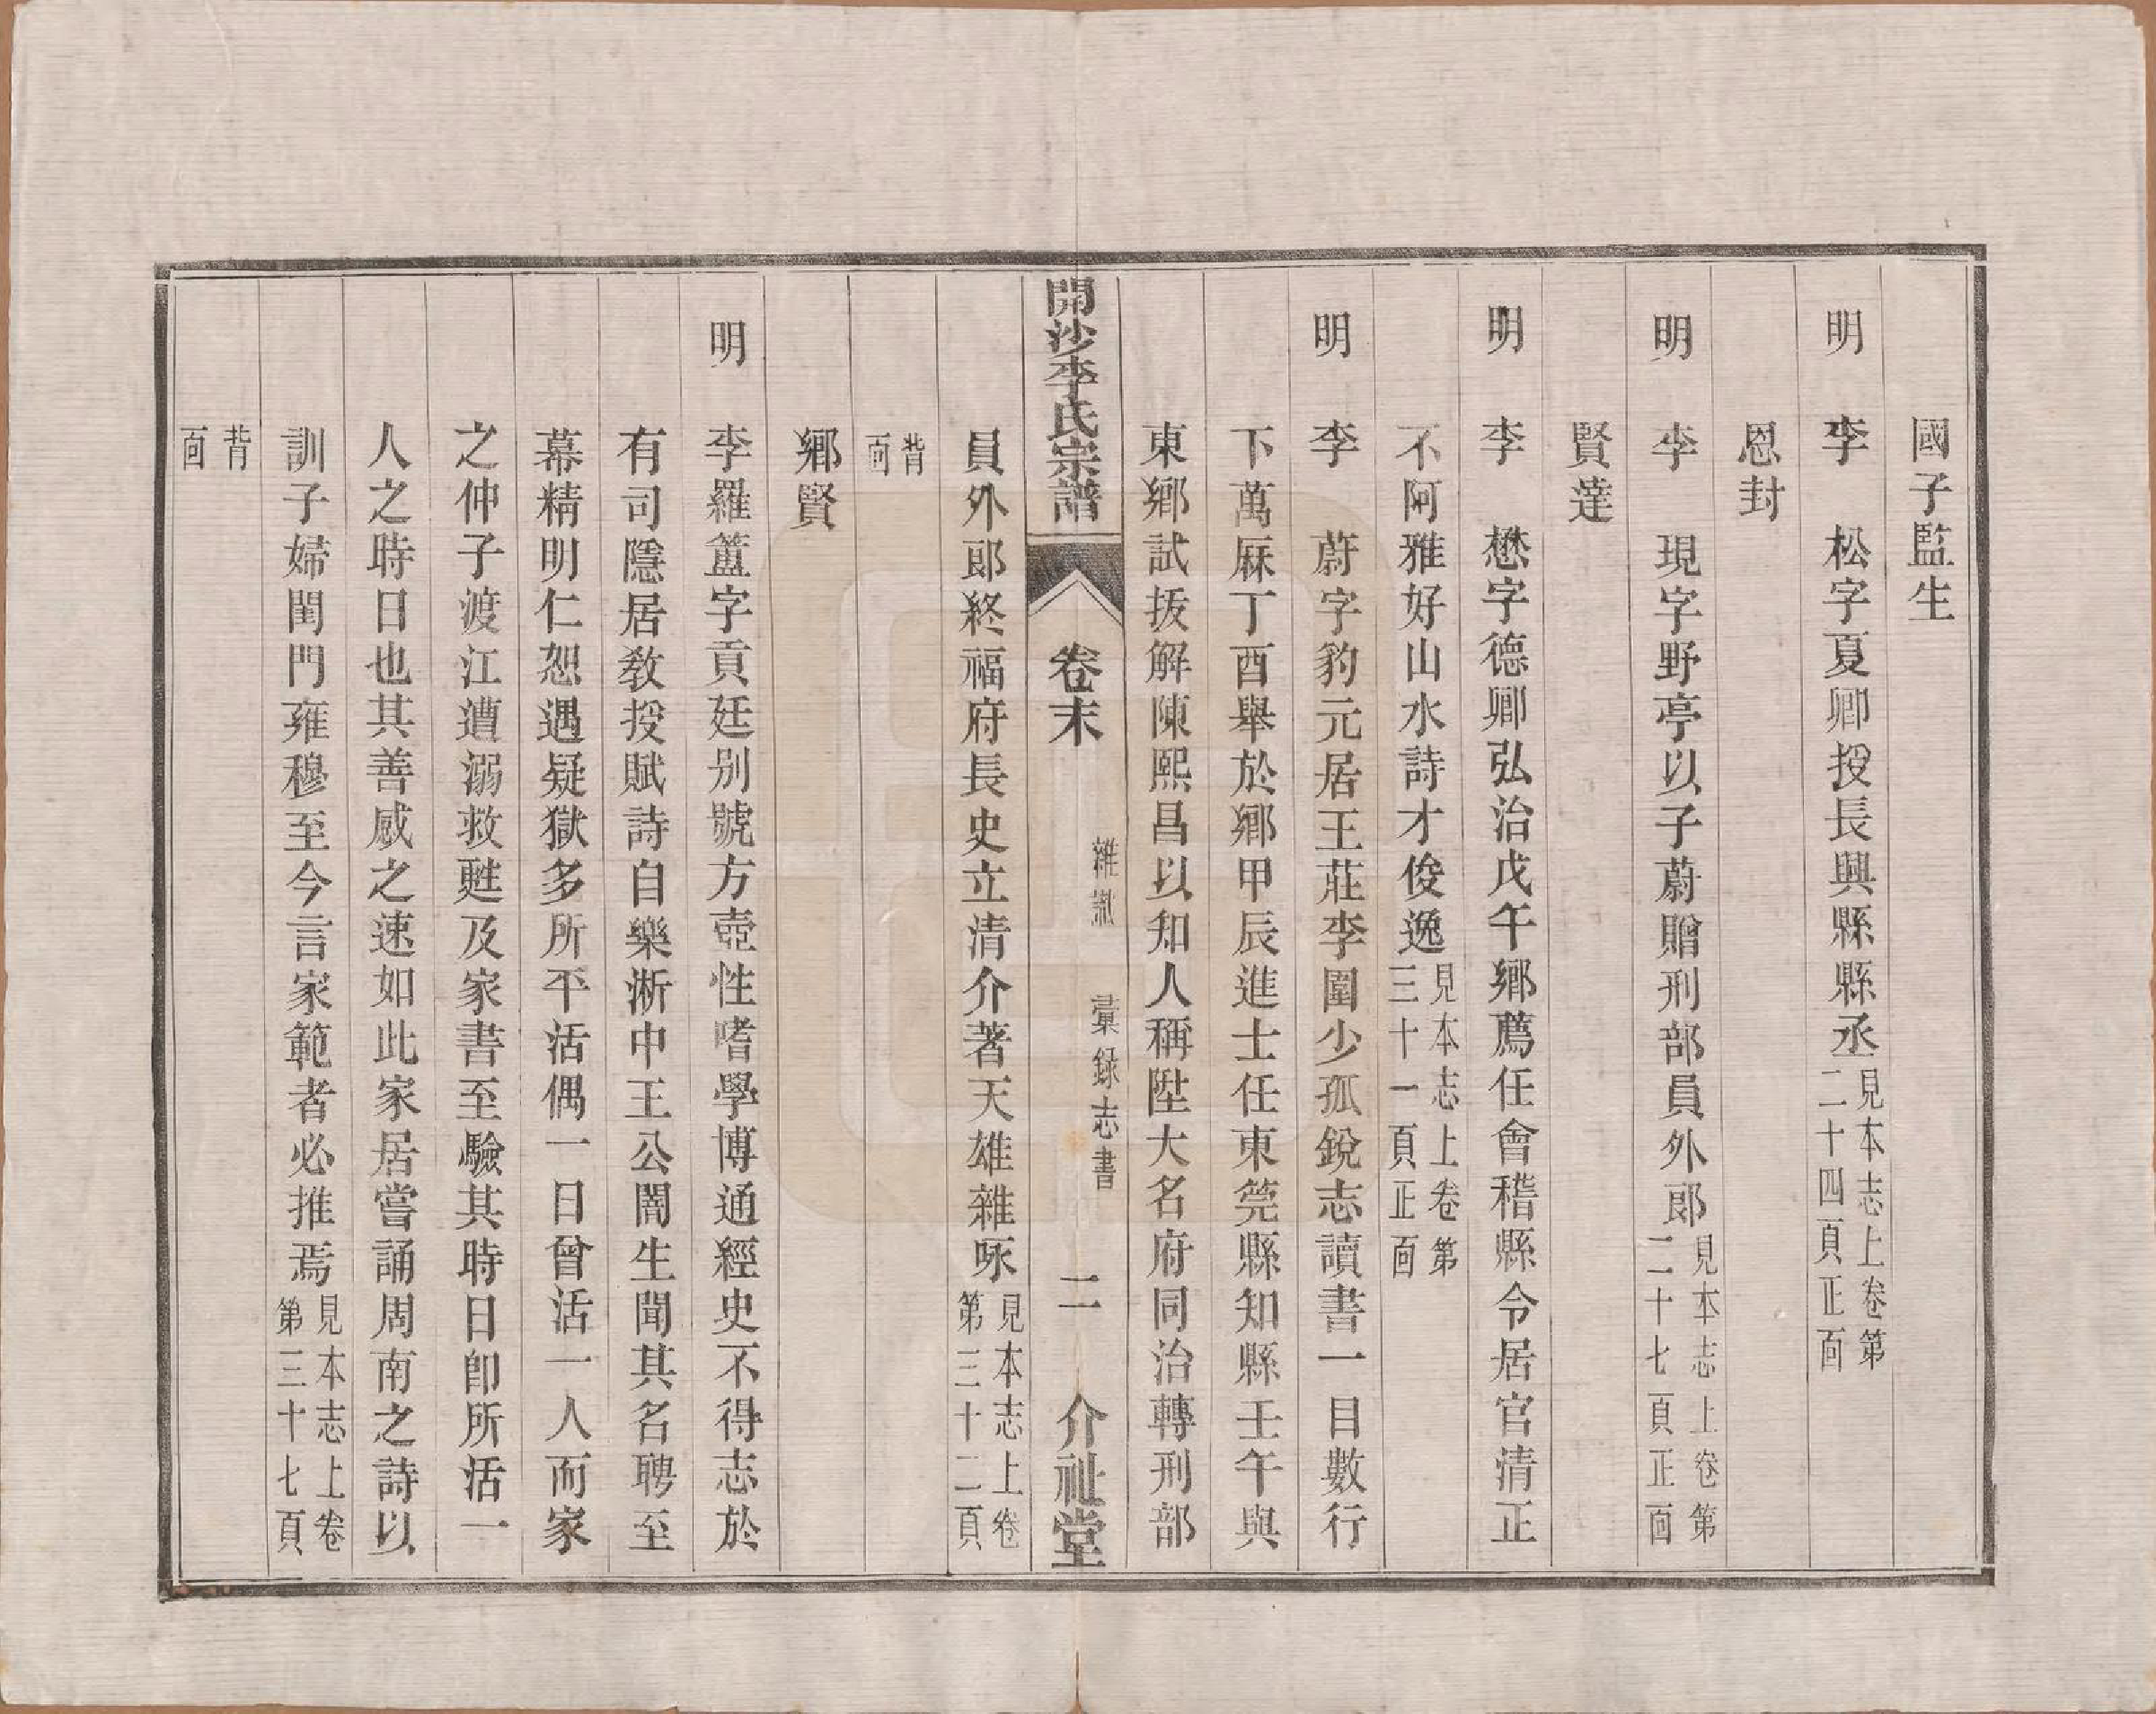 國子監生
明　李　松字夏卿授長興縣縣丞見本志上卷第二十四頁正面
恩封
明　李　現字野亭以子蔚贈刑部員外郎見本志上卷第二十七頁正面
賢達
明　李　懋字德卿弘治戊午鄉薦任會稽縣令居官清正
不阿雅好山水詩才俊逸見本志上卷第三十一頁正面
明　李　蔚字豹元居王莊李圍少孤銳志讀書一目數行
下萬厤丁酉舉於鄉甲辰進士任東莞縣知縣壬午與
東鄉試拔解陳熙昌以知人稱陞大名府同治轉刑部
開沙李氏宗譜　卷末　雜識　彙録志書　二　介祉堂
員外郎終福府長史立清介著天雄雜咏見本志上卷第三十二頁
背面
鄉賢
明　李羅簠字貢廷别號方壺性嗜學博通經史不得志於
有司隱居教授賦詩自樂淅中王公闇生聞其名聘至
幕精明仁恕遇疑獄多所平活偶一日曾活一人而家
之仲子渡江遭溺救甦及家書至驗其時日卽所活一
人之時日也其善感之速如此家居嘗誦周南之詩以
訓子婦閨門雍穆至今言家範者必推焉見本志上卷第三十七頁
背面